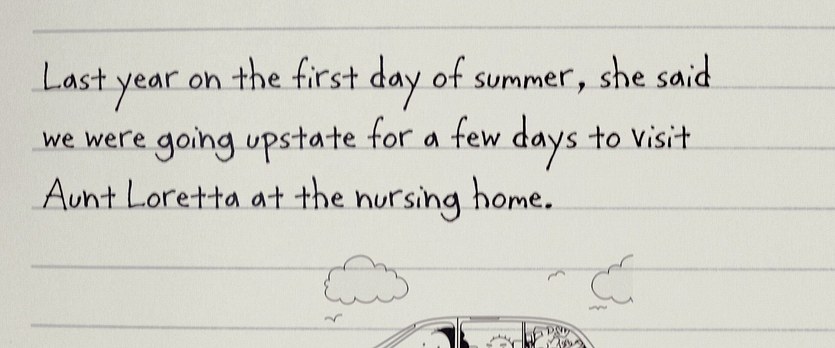 Last year on the first day of summer, she said
we were going upstate for a few days to visit
Aunt Loretta at the nursing home.